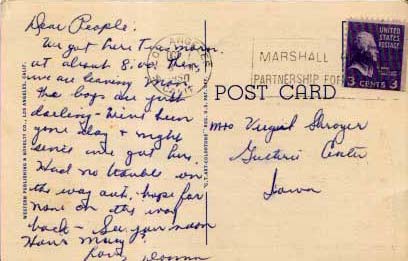 Dear People:
We got here this morn.
at about 8:00. Then
we are leaving
the boys are just
darling. We've been
gone day & night
since we got here.
Had no trouble on
the way out. hope for
none on the way
back - See you soon
Love,
LOS ANGELES
CALIF.
1950
MARSHALL
PARTNERSHIP FOR
UNITED STATES
POSTAGE
3 CENTS 3
POST CARD
Mrs Virgil Shroyer
Guthrie Center
Iowa
WESTERN PUBLISHING & NOVELTY CO., LOS ANGELES, CALIF.
"C.T. ART-COLORTONE" REG. U.S. PAT. OFF.